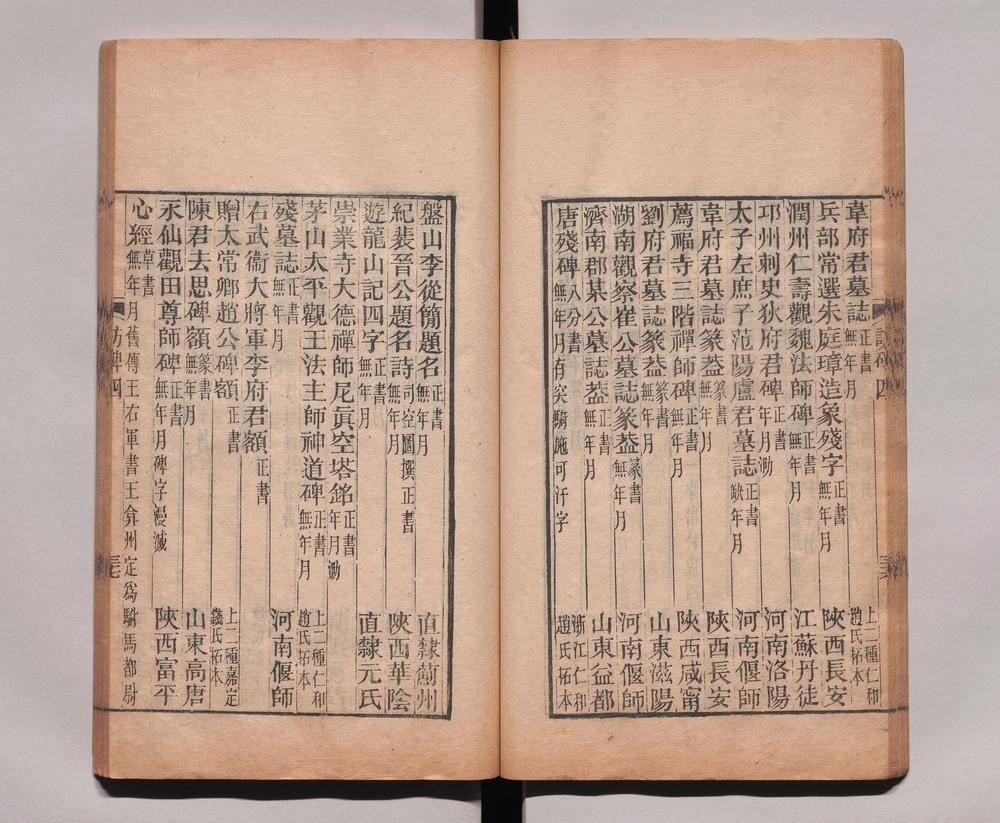 韋府君墓誌 正書 無年月 上二種仁和趙氏拓本
兵部常選朱庭瑋造象殘字 正書 無年月 陝西長安
潤州仁壽觀魏法師碑 正書 無年月 江蘇丹徒
邛州刺史狄府君碑 正書 年月泐 河南洛陽
太子左庶子范陽盧君墓誌 正書 缺年月 河南偃師
韋府君墓誌篆葢 篆書 無年月 陝西長安
薦福寺三階禪師碑 正書 無年月 陝西咸甯
劉府君墓誌篆葢 篆書 無年月 山東滋陽
湖南觀察崔公墓誌篆葢 篆書 無年月 河南偃師
濟南郡某公墓誌葢 正書 無年月 山東益都
唐殘碑 八分書 無年月有突騎施可汗字 浙江仁和趙氏拓本
訪碑四
盤山李從簡題名 正書 無年月 直隸薊州
紀裴晉公題名詩 司空圖撰正書 無年月 陝西華陰
遊龍山記四字 正書 無年月 直隸元氏
崇業寺大德禪師尼眞空塔銘 正書 年月泐
茅山太平觀王法主師神道碑 正書 無年月 上二種仁和趙氏拓本
殘墓誌 正書 無年月 河南偃師
右武衞大將軍李府君額 正書
贈太常卿趙公碑額 正書 上二種嘉定錢氏拓本
陳君去思碑額 篆書 無年月 山東高唐
永仙觀田尊師碑 正書 無年月碑字漫滅 陝西富平
心經 草書 無年月舊傳王右軍書王弇州定爲駙馬都尉
訪碑四